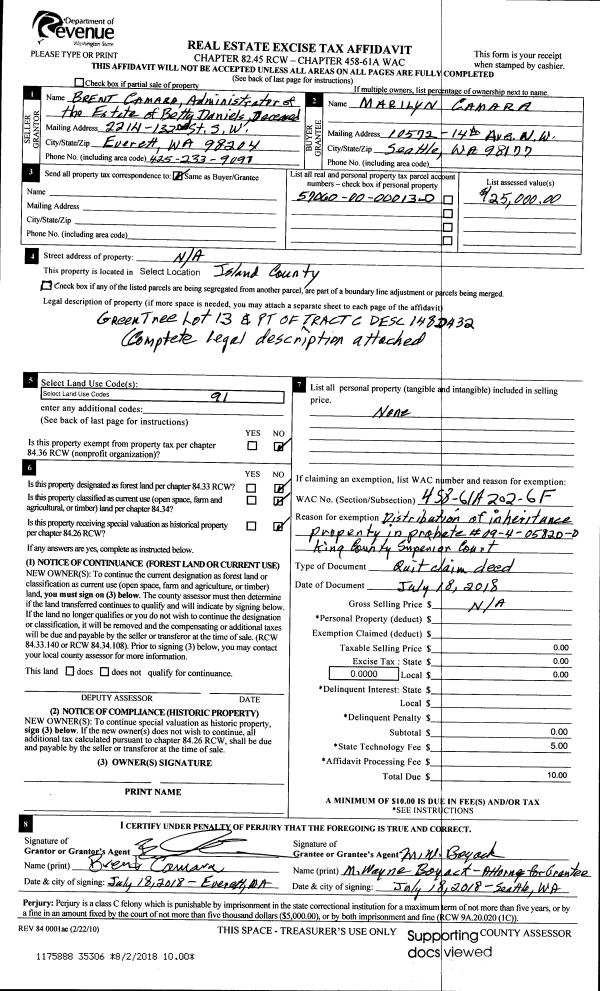 Department of
Revenue
Washington State
PLEASE TYPE OR PRINT
REAL ESTATE EXCISE TAX AFFIDAVIT
CHAPTER 82.45 RCW – CHAPTER 458-61A WAC
This form is your receipt
when stamped by cashier.
THIS AFFIDAVIT WILL NOT BE ACCEPTED UNLESS ALL AREAS ON ALL PAGES ARE FULLY COMPLETED
(See back of last page for instructions)
Check box if partial sale of property
If multiple owners, list percentage of ownership next to name.
1
SELLER
GRANTOR
Name Brent Camara, Administrator of
the Estate of Betty Daniels, Deceased
Mailing Address 2214-132nd St. S.W.
City/State/Zip Everett, WA 98204
Phone No. (including area code) 425-233-9091
2
BUYER
GRANTEE
Name MARILYN CAMARA
Mailing Address 10572-14th Ave. N.W.
City/State/Zip Seattle, WA 98177
Phone No. (including area code)
3
Send all property tax correspondence to: Same as Buyer/Grantee
Name
Mailing Address
City/State/Zip
Phone No. (including area code)
List all real and personal property tax parcel account
numbers – check box if personal property
59060-00-00013-0
List assessed value(s)
$125,000.00
4
Street address of property: N/A
This property is located in Select Location Island County
Check box if any of the listed parcels are being segregated from another parcel, are part of a boundary line adjustment or parcels being merged.
Legal description of property (if more space is needed, you may attach a separate sheet to each page of the affidavit)
GreenTree Lot 13 & PT OF TRACT C DESC 1482432
(Complete legal description attached
5
Select Land Use Code(s):
Select Land Use Codes 91
enter any additional codes:
(See back of last page for instructions)
YES NO
Is this property exempt from property tax per chapter
84.36 RCW (nonprofit organization)?
6
YES NO
Is this property designated as forest land per chapter 84.33 RCW?
Is this property classified as current use (open space, farm and
agricultural, or timber) land per chapter 84.34?
Is this property receiving special valuation as historical property
per chapter 84.26 RCW?
If any answers are yes, complete as instructed below.
(1) NOTICE OF CONTINUANCE (FOREST LAND OR CURRENT USE)
NEW OWNER(S): To continue the current designation as forest land or
classification as current use (open space, farm and agriculture, or timber)
land, you must sign on (3) below. The county assessor must then determine
if the land transferred continues to qualify and will indicate by signing below.
If the land no longer qualifies or you do not wish to continue the designation
or classification, it will be removed and the compensating or additional taxes
will be due and payable by the seller or transferor at the time of sale. (RCW
84.33.140 or RCW 84.34.108). Prior to signing (3) below, you may contact
your local county assessor for more information.
This land does does not qualify for continuance.
DEPUTY ASSESSOR DATE
(2) NOTICE OF COMPLIANCE (HISTORIC PROPERTY)
NEW OWNER(S): To continue special valuation as historic property,
sign (3) below. If the new owner(s) does not wish to continue, all
additional tax calculated pursuant to chapter 84.26 RCW, shall be due
and payable by the seller or transferor at the time of sale.
(3) OWNER(S) SIGNATURE
PRINT NAME
7
List all personal property (tangible and intangible) included in selling
price.
None
If claiming an exemption, list WAC number and reason for exemption:
WAC No. (Section/Subsection) 458-61A202-6F
Reason for exemption Distribution of inheritance
property in probate #09-4-05820-0
King County Superior Court
Type of Document Quit claim deed
Date of Document July 18, 2018
Gross Selling Price $ N/A
*Personal Property (deduct) $
Exemption Claimed (deduct) $
Taxable Selling Price $ 0.00
Excise Tax : State $ 0.00
0.0000 Local $ 0.00
*Delinquent Interest: State $
Local $
*Delinquent Penalty $
Subtotal $ 0.00
*State Technology Fee $ 5.00
*Affidavit Processing Fee $
Total Due $ 10.00
A MINIMUM OF $10.00 IS DUE IN FEE(S) AND/OR TAX
*SEE INSTRUCTIONS
8
I CERTIFY UNDER PENALTY OF PERJURY THAT THE FOREGOING IS TRUE AND CORRECT.
Signature of
Grantor or Grantor's Agent
Name (print) Brent Camara
Date & city of signing: July 18, 2018 - Everett, WA
Signature of
Grantee or Grantee's Agent M.W. Boyack
Name (print) M. Wayne Boyack-Attorney for Grantee
Date & city of signing: July 18, 2018 - Seattle, WA
Perjury: Perjury is a class C felony which is punishable by imprisonment in the state correctional institution for a maximum term of not more than five years, or by
a fine in an amount fixed by the court of not more than five thousand dollars ($5,000.00), or by both imprisonment and fine (RCW 9A.20.020 (1C)).
REV 84 0001ae (2/22/10)
THIS SPACE - TREASURER'S USE ONLY
COUNTY ASSESSOR
Supporting
docs viewed
1175888 35306 *8/2/2018 10.00*